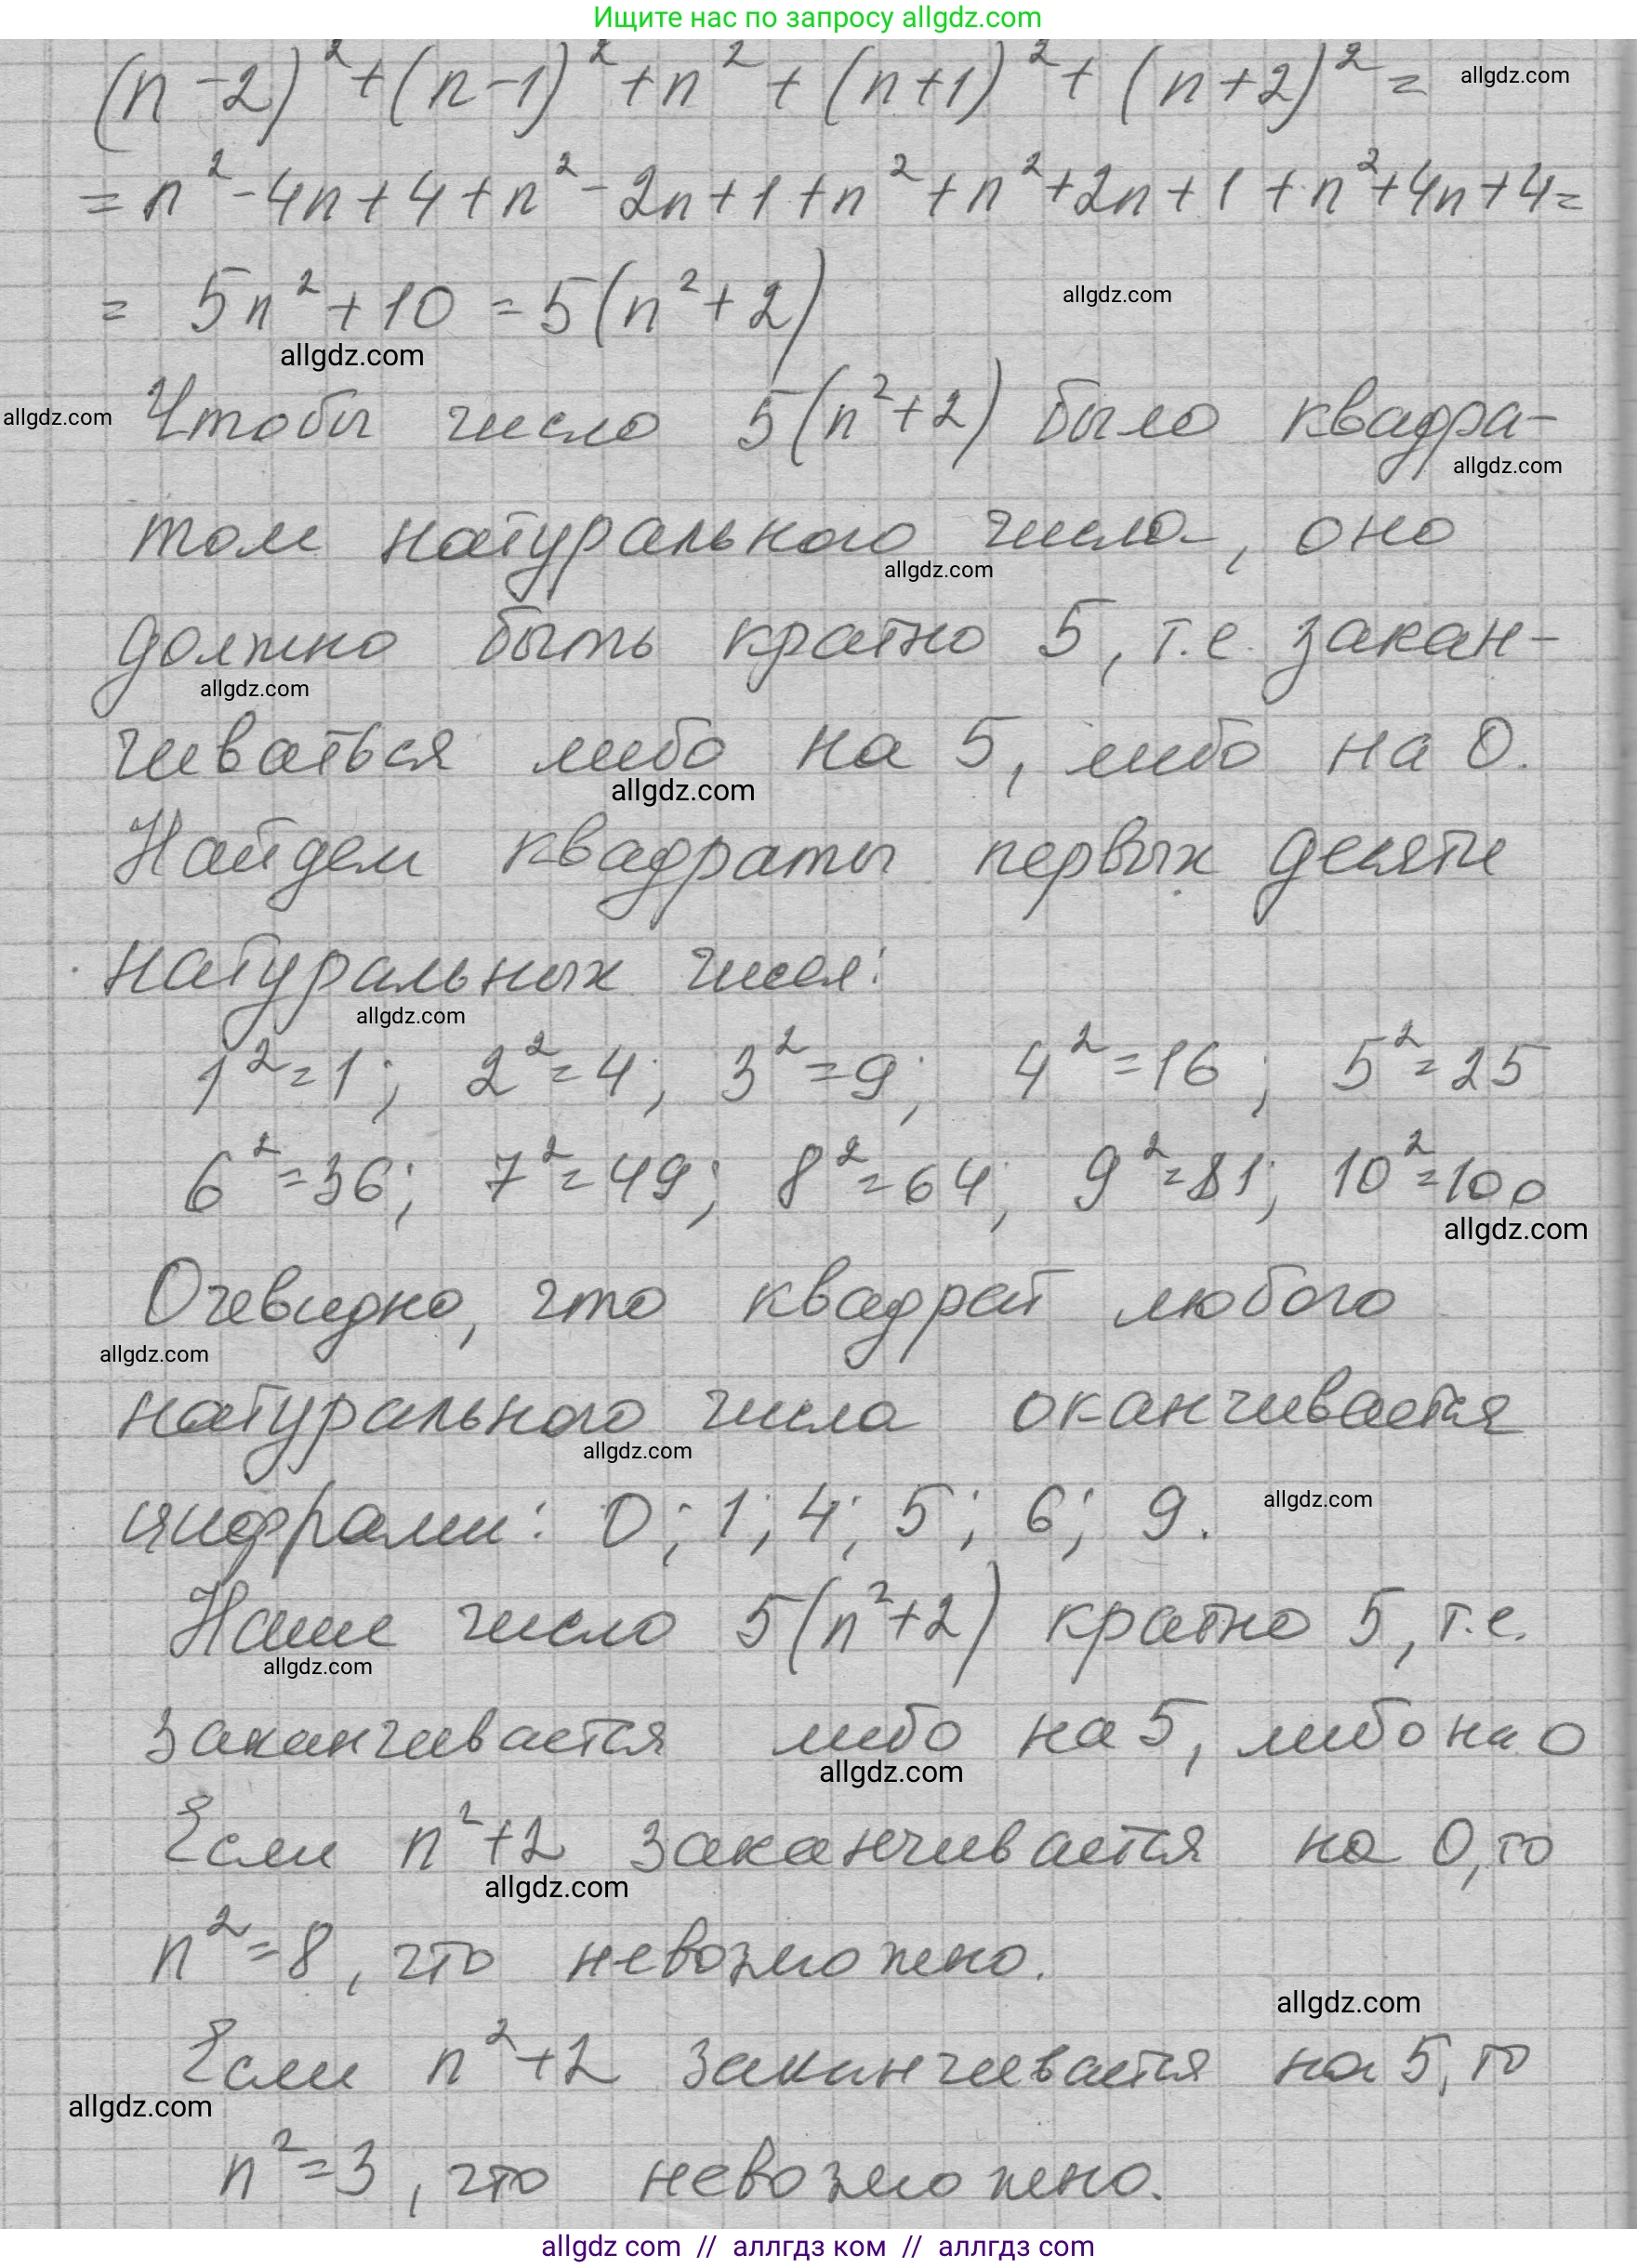 Ищите нас по запросу allgdz.com
(n-2)² + (n-1)² + n² + (n+1)² + (n+2)² =
allgdz.com
= n² - 4n + 4 + n² - 2n + 1 + n² + n² + 2n + 1 + n² + 4n + 4 =
= 5n² + 10 = 5(n² + 2)
allgdz.com
allgdz.com
allgdz.com
Чтобы число 5(n²+2) было квадра-
allgdz.com
том натурального числа, оно
allgdz.com
должно быть кратно 5, т.е. закан-
allgdz.com
чиваться либо на 5, либо на 0.
allgdz.com
Найдем квадраты первых десяти
натуральных чисел:
allgdz.com
1² = 1; 2² = 4; 3² = 9; 4² = 16; 5² = 25
6² = 36; 7² = 49; 8² = 64; 9² = 81; 10² = 100
allgdz.com
Очевидно, что квадрат любого
allgdz.com
натурального числа оканчивается
allgdz.com
цифрами: 0; 1; 4; 5; 6; 9.
allgdz.com
Наше число 5(n²+2) кратно 5, т.е.
allgdz.com
заканчивается либо на 5, либо на 0
allgdz.com
Если n²+2 заканчивается на 0, то
allgdz.com
n² = 8, что невозможно.
allgdz.com
Если n²+2 заканчивается на 5, то
allgdz.com
n² = 3, что невозможно.
allgdz com // аллгдз ком // аллгдз com